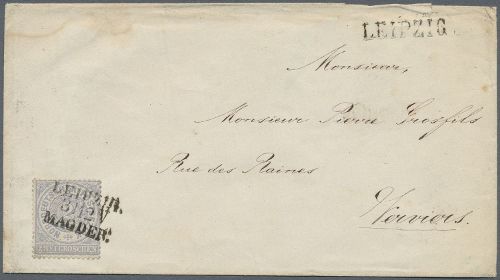 LEIPZIG
Monsieur,
Monsieur Pierre Grosfils
Rue des Raines
Verviers.
LEIPZIG.
MAGDEB.
ZWEI GROSCHEN